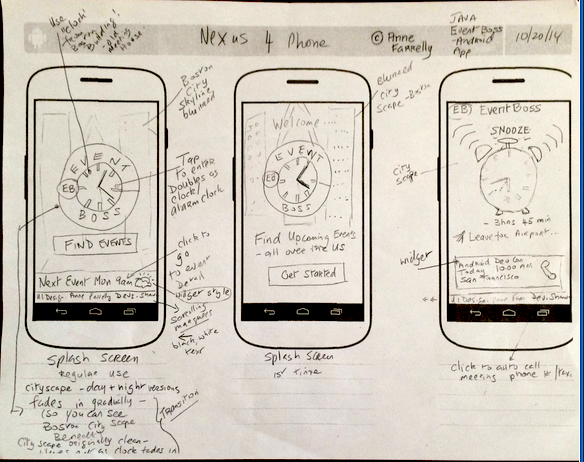 Nexus 4 Phone
© Anne
Fannelly
JAVA
Event Boss
- Android
App
10/20/14
Use
"clock"
from
Boston
Building!
old
meeting
House!
Boston
City
Skyline
blurred
EVENT
EB
BOSS
FIND EVENTS
Next Event Mon 9am
UI Design: Anne Fannelly Devs: Shaw
Tap
to enter
Doubles as
clock/
alarm clock
click to
go
to event
detail
widget style
Scrolling
black, white
text
Splash Screen
Regular use
cityscape - day + night versions
fades in gradually -
(so you can see
Boston City Scape
Beneath
City scape originally clean -
as clock fades in
TRANSITION
Blurred
City
scape - Boston
Welcome...
EVENT
EB
BOSS
Find Upcoming Events
- all over the US
Get Started
Splash Screen
1st time
EB EventBoss
SNOOZE
City
scape
- 3hrs 45 min
Leave for Airport...
widget
Android Dev Con
Today 10:00 AM
San Francisco
UI Design: Dev: Shaw
click to auto call
meeting phone #